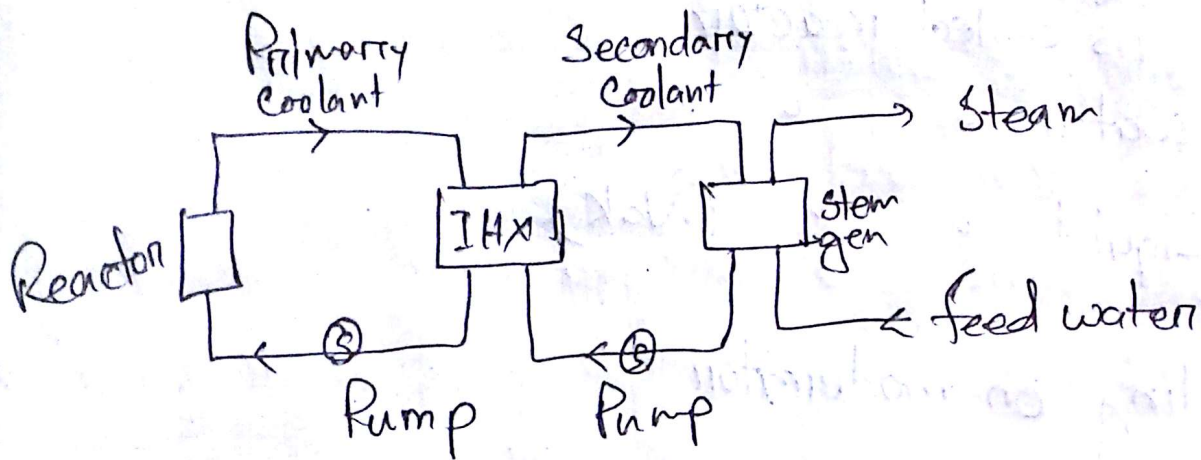 Primarry
Coolant
Secondarry
Coolant
Steam
Reactor
IHX
stem
gen
feed water
S
S
Pump
Pump